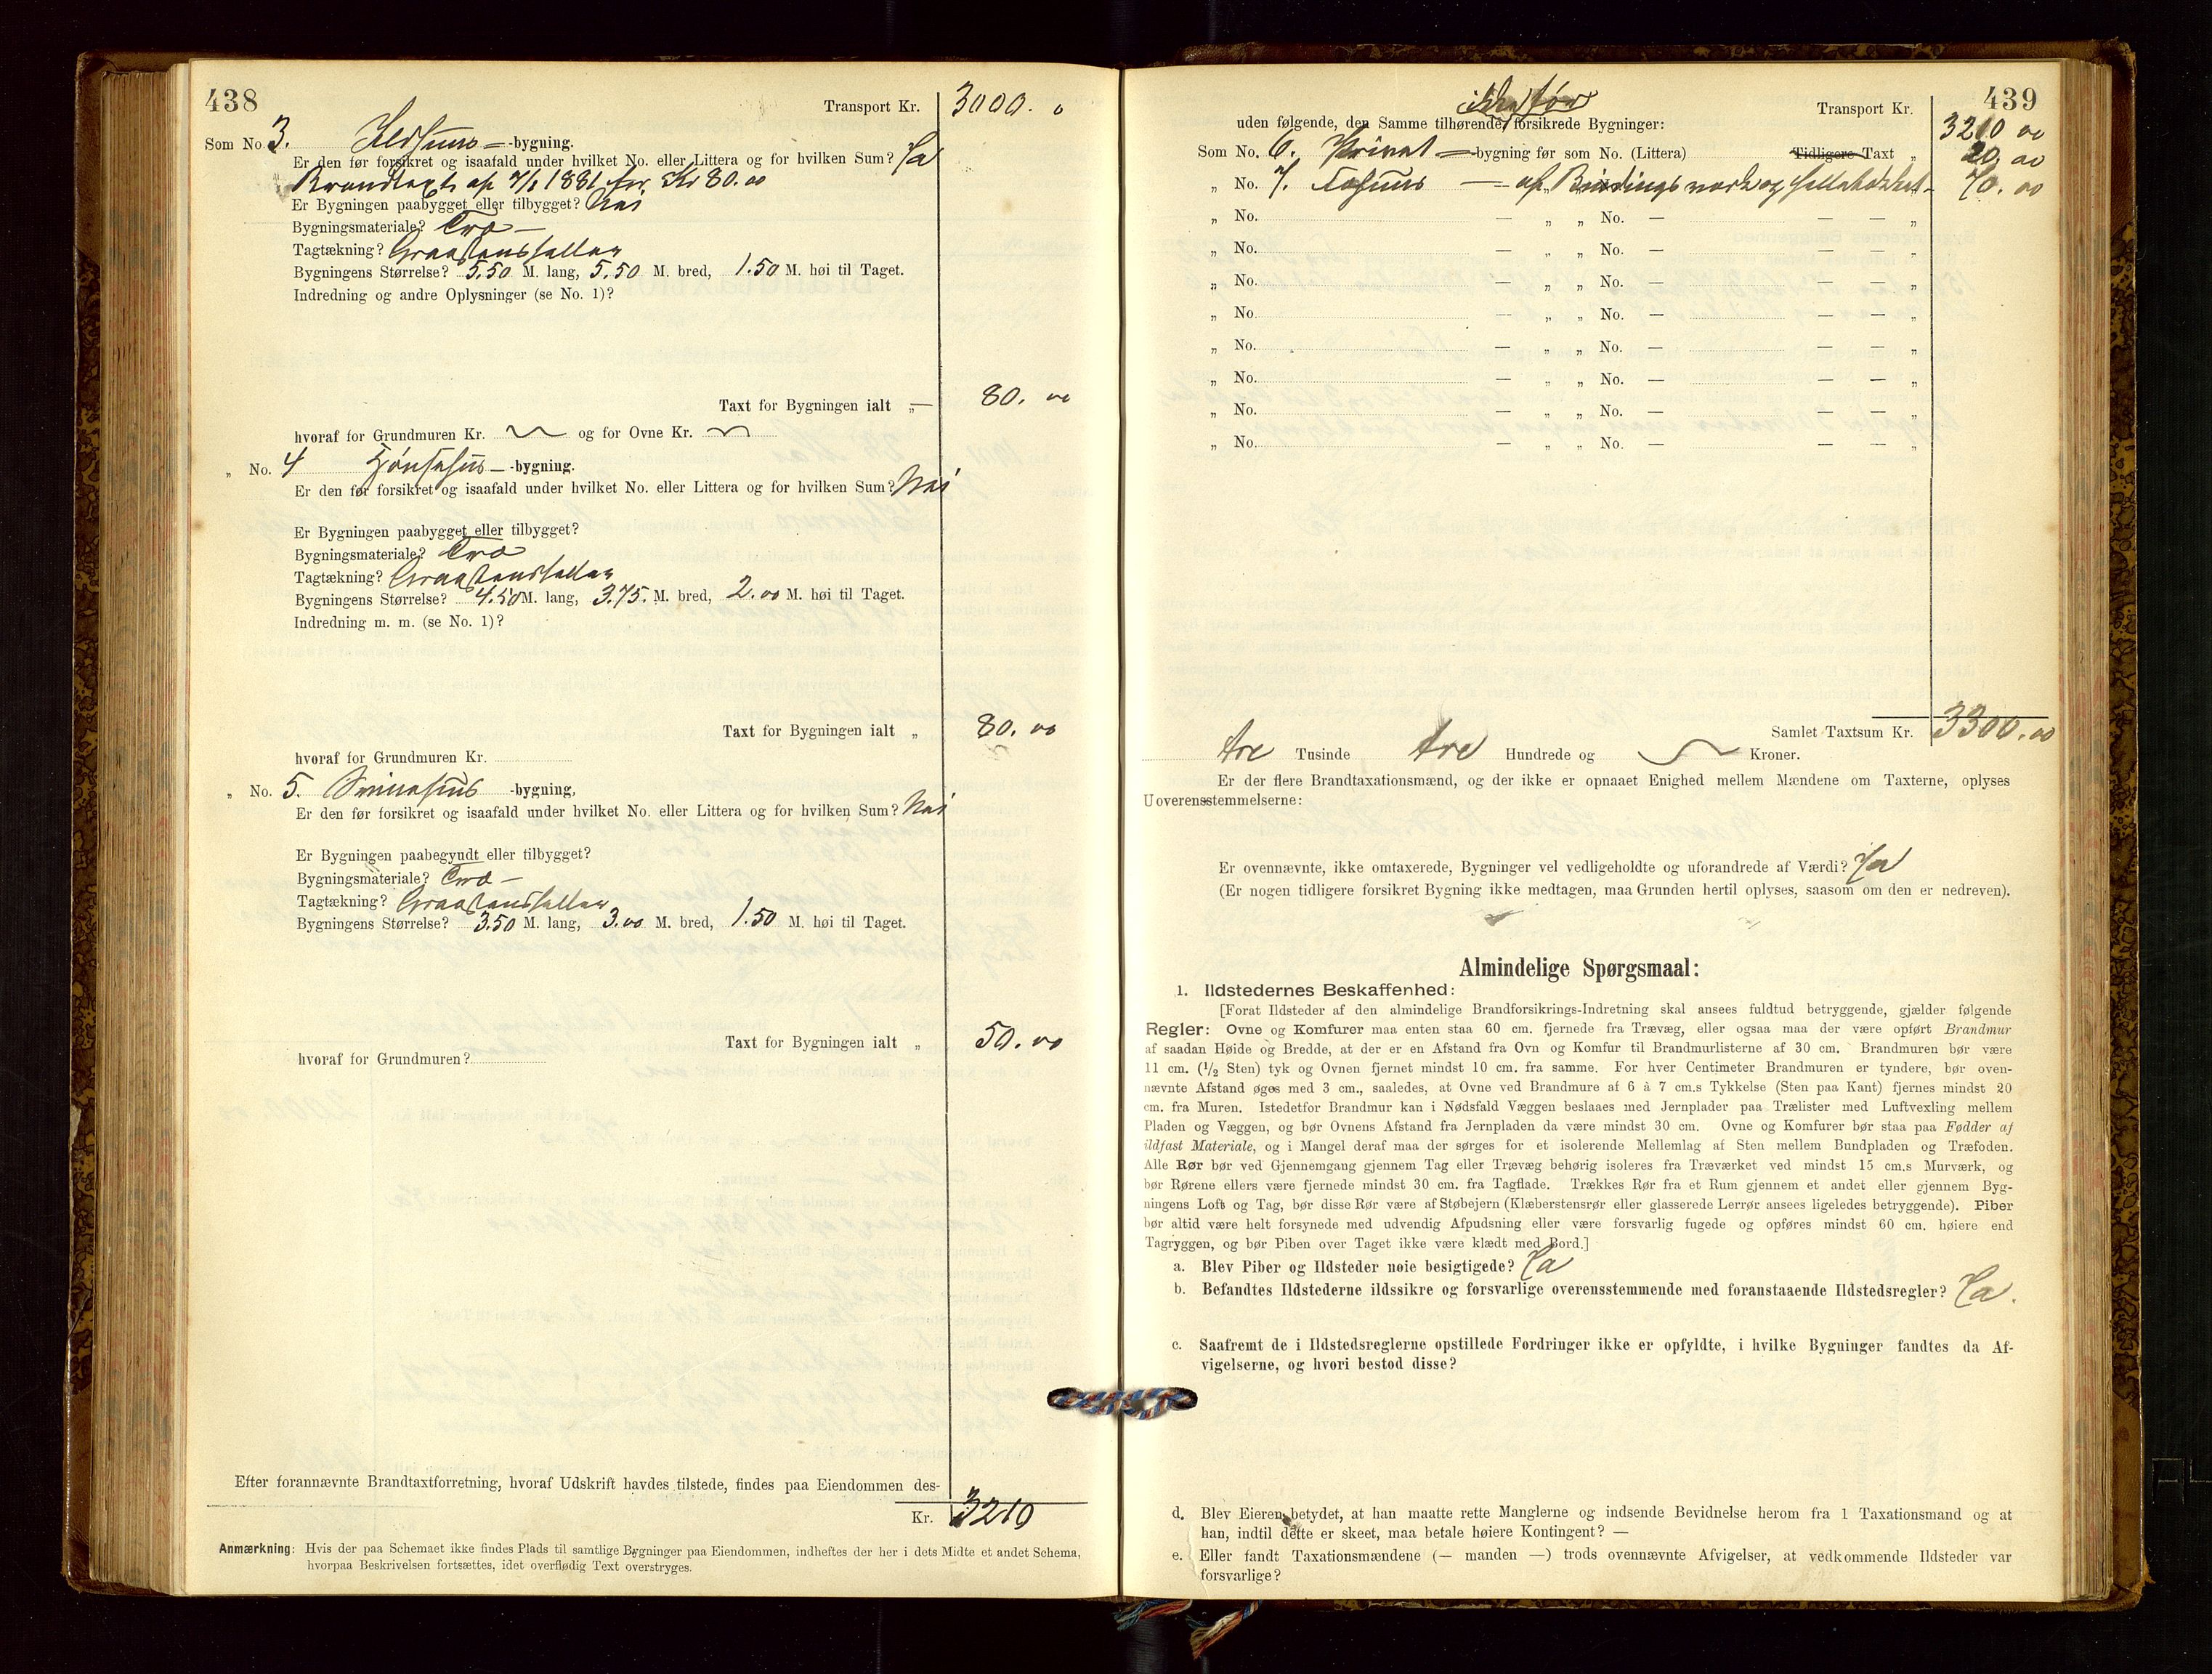 438
Transport Kr. 3000. 0
Som No. 3. Ildhuus -bygning.
Er den før forsikret og isaafald under hvilket No. eller Littera og for hvilken Sum? Ja
Brandtaxt af 7/1 1881 for Kr 80.00
Er Bygningen paabygget eller tilbygget? Nei
Bygningsmateriale? Træ —
Tagtækning? Graastenshellar
Bygningens Størrelse? 5.50 M. lang, 5.50 M. bred, 1.50 M. høi til Taget.
Indredning og andre Oplysninger (se No. 1)?
Taxt for Bygningen ialt „ — 80. 00
hvoraf for Grundmuren Kr. og for Ovne Kr.
„ No. 4 Hønsehus -bygning.
Er den før forsikret og isaafald under hvilket No. eller Littera og for hvilken Sum? Nei
Er Bygningen paabygget eller tilbygget?
Bygningsmateriale? Træ
Tagtækning? Graastenshellar
Bygningens Størrelse? 4.50 M. lang, 3.75. M. bred, 2.00 M. høi til Taget.
Indredning m. m. (se No. 1)?
Taxt for Bygningen ialt „ 80. 00
hvoraf for Grundmuren Kr.
„ No. 5. Svinehus -bygning,
Er den før forsikret og isaafald under hvilket No. eller Littera og for hvilken Sum? Nei
Er Bygningen paabegyndt eller tilbygget?
Bygningsmateriale? Træ —
Tagtækning? Graastenshellar
Bygningens Størrelse? 3.50 M. lang, 3.00 M. bred, 1.50 M. høi til Taget.
Taxt for Bygningen ialt „ 50. 00
hvoraf for Grundmuren?
Efter forannævnte Brandtaxtforretning, hvoraf Udskrift havdes tilstede, findes paa Eiendommen des-
Kr. 3210
Anmærkning: Hvis der paa Schemaet ikke findes Plads til samtlige Bygninger paa Eiendommen, indheftes der her i dets Midte et andet Schema,
hvorpaa Beskrivelsen fortsættes, idet overflødig Text overstryges.
439
Transport Kr. 3210 00
ikke før
uden følgende, den Samme tilhørende, forsikrede Bygninger:
Som No. 6. Privat — -bygning før som No. (Littera) Tidligere Taxt „ 20, 00
„ No. 7. — af Bindingsværk og helletækket - 70. 00
„ No. — „ „ No. — — — „
„ No. — „ „ No. — — — „
„ No. — „ „ No. — — — „
„ No. — „ „ No. — — — „
„ No. — „ „ No. — — — „
„ No. — „ „ No. — — — „
„ No. — „ „ No. — — — „
„ No. — „ „ No. — — — „
Samlet Taxtsum Kr. 3300. 00
tre Tusinde tre Hundrede og Kroner.
Er der flere Brandtaxationsmænd, og der ikke er opnaaet Enighed mellem Mændene om Taxterne, oplyses
Uoverensstemmelserne:
Er ovennævnte, ikke omtaxerede, Bygninger vel vedligeholdte og uforandrede af Værdi? Ja
(Er nogen tidligere forsikret Bygning ikke medtagen, maa Grunden hertil oplyses, saasom om den er nedreven).
Almindelige Spørgsmaal:
1. Ildstedernes Beskaffenhed:
[Forat Ildsteder af den almindelige Brandforsikrings-Indretning skal ansees fuldtud betryggende, gjælder følgende
Regler: Ovne og Komfurer maa enten staa 60 cm. fjernede fra Trævæg, eller ogsaa maa der være opført Brandmur
af saadan Høide og Bredde, at der er en Afstand fra Ovn og Komfur til Brandmurlisterne af 30 cm. Brandmuren bør være
11 cm. (1/2 Sten) tyk og Ovnen fjernet mindst 10 cm. fra samme. For hver Centimeter Brandmuren er tyndere, bør oven-
nævnte Afstand øges med 3 cm., saaledes, at Ovne ved Brandmure af 6 à 7 cm.s Tykkelse (Sten paa Kant) fjernes mindst 20
cm. fra Muren. Istedetfor Brandmur kan i Nødsfald Væggen beslaaes med Jernplader paa Trælister med Luftvexling mellem
Pladen og Væggen, og bør Ovnens Afstand fra Jernpladen da være mindst 30 cm. Ovne og Komfurer bør staa paa Fødder af
ildfast Materiale, og i Mangel deraf maa der sørges for et isolerende Mellemlag af Sten mellem Bundpladen og Træfoden.
Alle Rør bør ved Gjennemgang gjennem Tag eller Trævæg behørig isoleres fra Træværket ved mindst 15 cm.s Murværk, og
bør Rørene ellers være fjernede mindst 30 cm. fra Tagflade. Trækkes Rør fra et Rum gjennem et andet eller gjennem Byg-
ningens Loft og Tag, bør disse Rør være af Støbejern (Klæberstensrør eller glasserede Lerrør ansees ligeledes betryggende). Piber
bør altid være helt forsynede med udvendig Afpudsning eller være forsvarlig fugede og opføres mindst 60 cm. høiere end
Tagryggen, og bør Piben over Taget ikke være klædt med Bord.]
a. Blev Piber og Ildsteder nøie besigtigede? Ja
b. Befandtes Ildstederne ildssikre og forsvarlige overensstemmende med foranstaaende Ildstedsregler? Ja.
c. Saafremt de i Ildstedsreglerne opstillede Fordringer ikke er opfyldte, i hvilke Bygninger fandtes da Af-
vigelserne, og hvori bestod disse?
d. Blev Eieren betydet, at han maatte rette Manglerne og indsende Bevidnelse herom fra 1 Taxationsmand og at
han, indtil dette er skeet, maa betale høiere Kontingent? —
e. Eller fandt Taxationsmændene (— manden —) trods ovennævnte Afvigelser, at vedkommende Ildsteder var
forsvarlige?